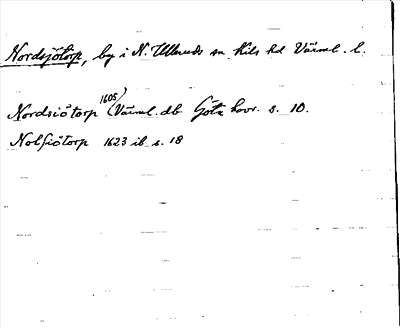 Nordsjötorp, by i N. Ulleruds sn. Kils hd Värml. l.
Nordsiötorp (1605) Värml. db Göta hovr. s. 10.
Nolsiötorp 1623 ib s. 18